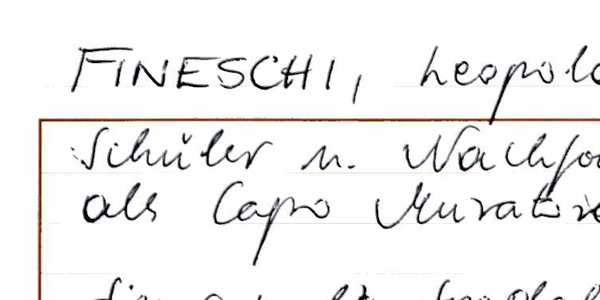 FINESCHI, Leopold
Schüler u. Nachfo
als Capo Muratore